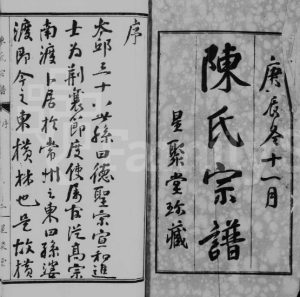 庚辰冬十一月
陳氏宗譜
星聚堂珍藏
序
太邱三十八世孫曰德聖宗宣和進
士為荆襄節度使屬
高宗
南渡卜居於常州之東曰孫婆
渡即今之東橫林也是故橫
陳氏宗譜
序